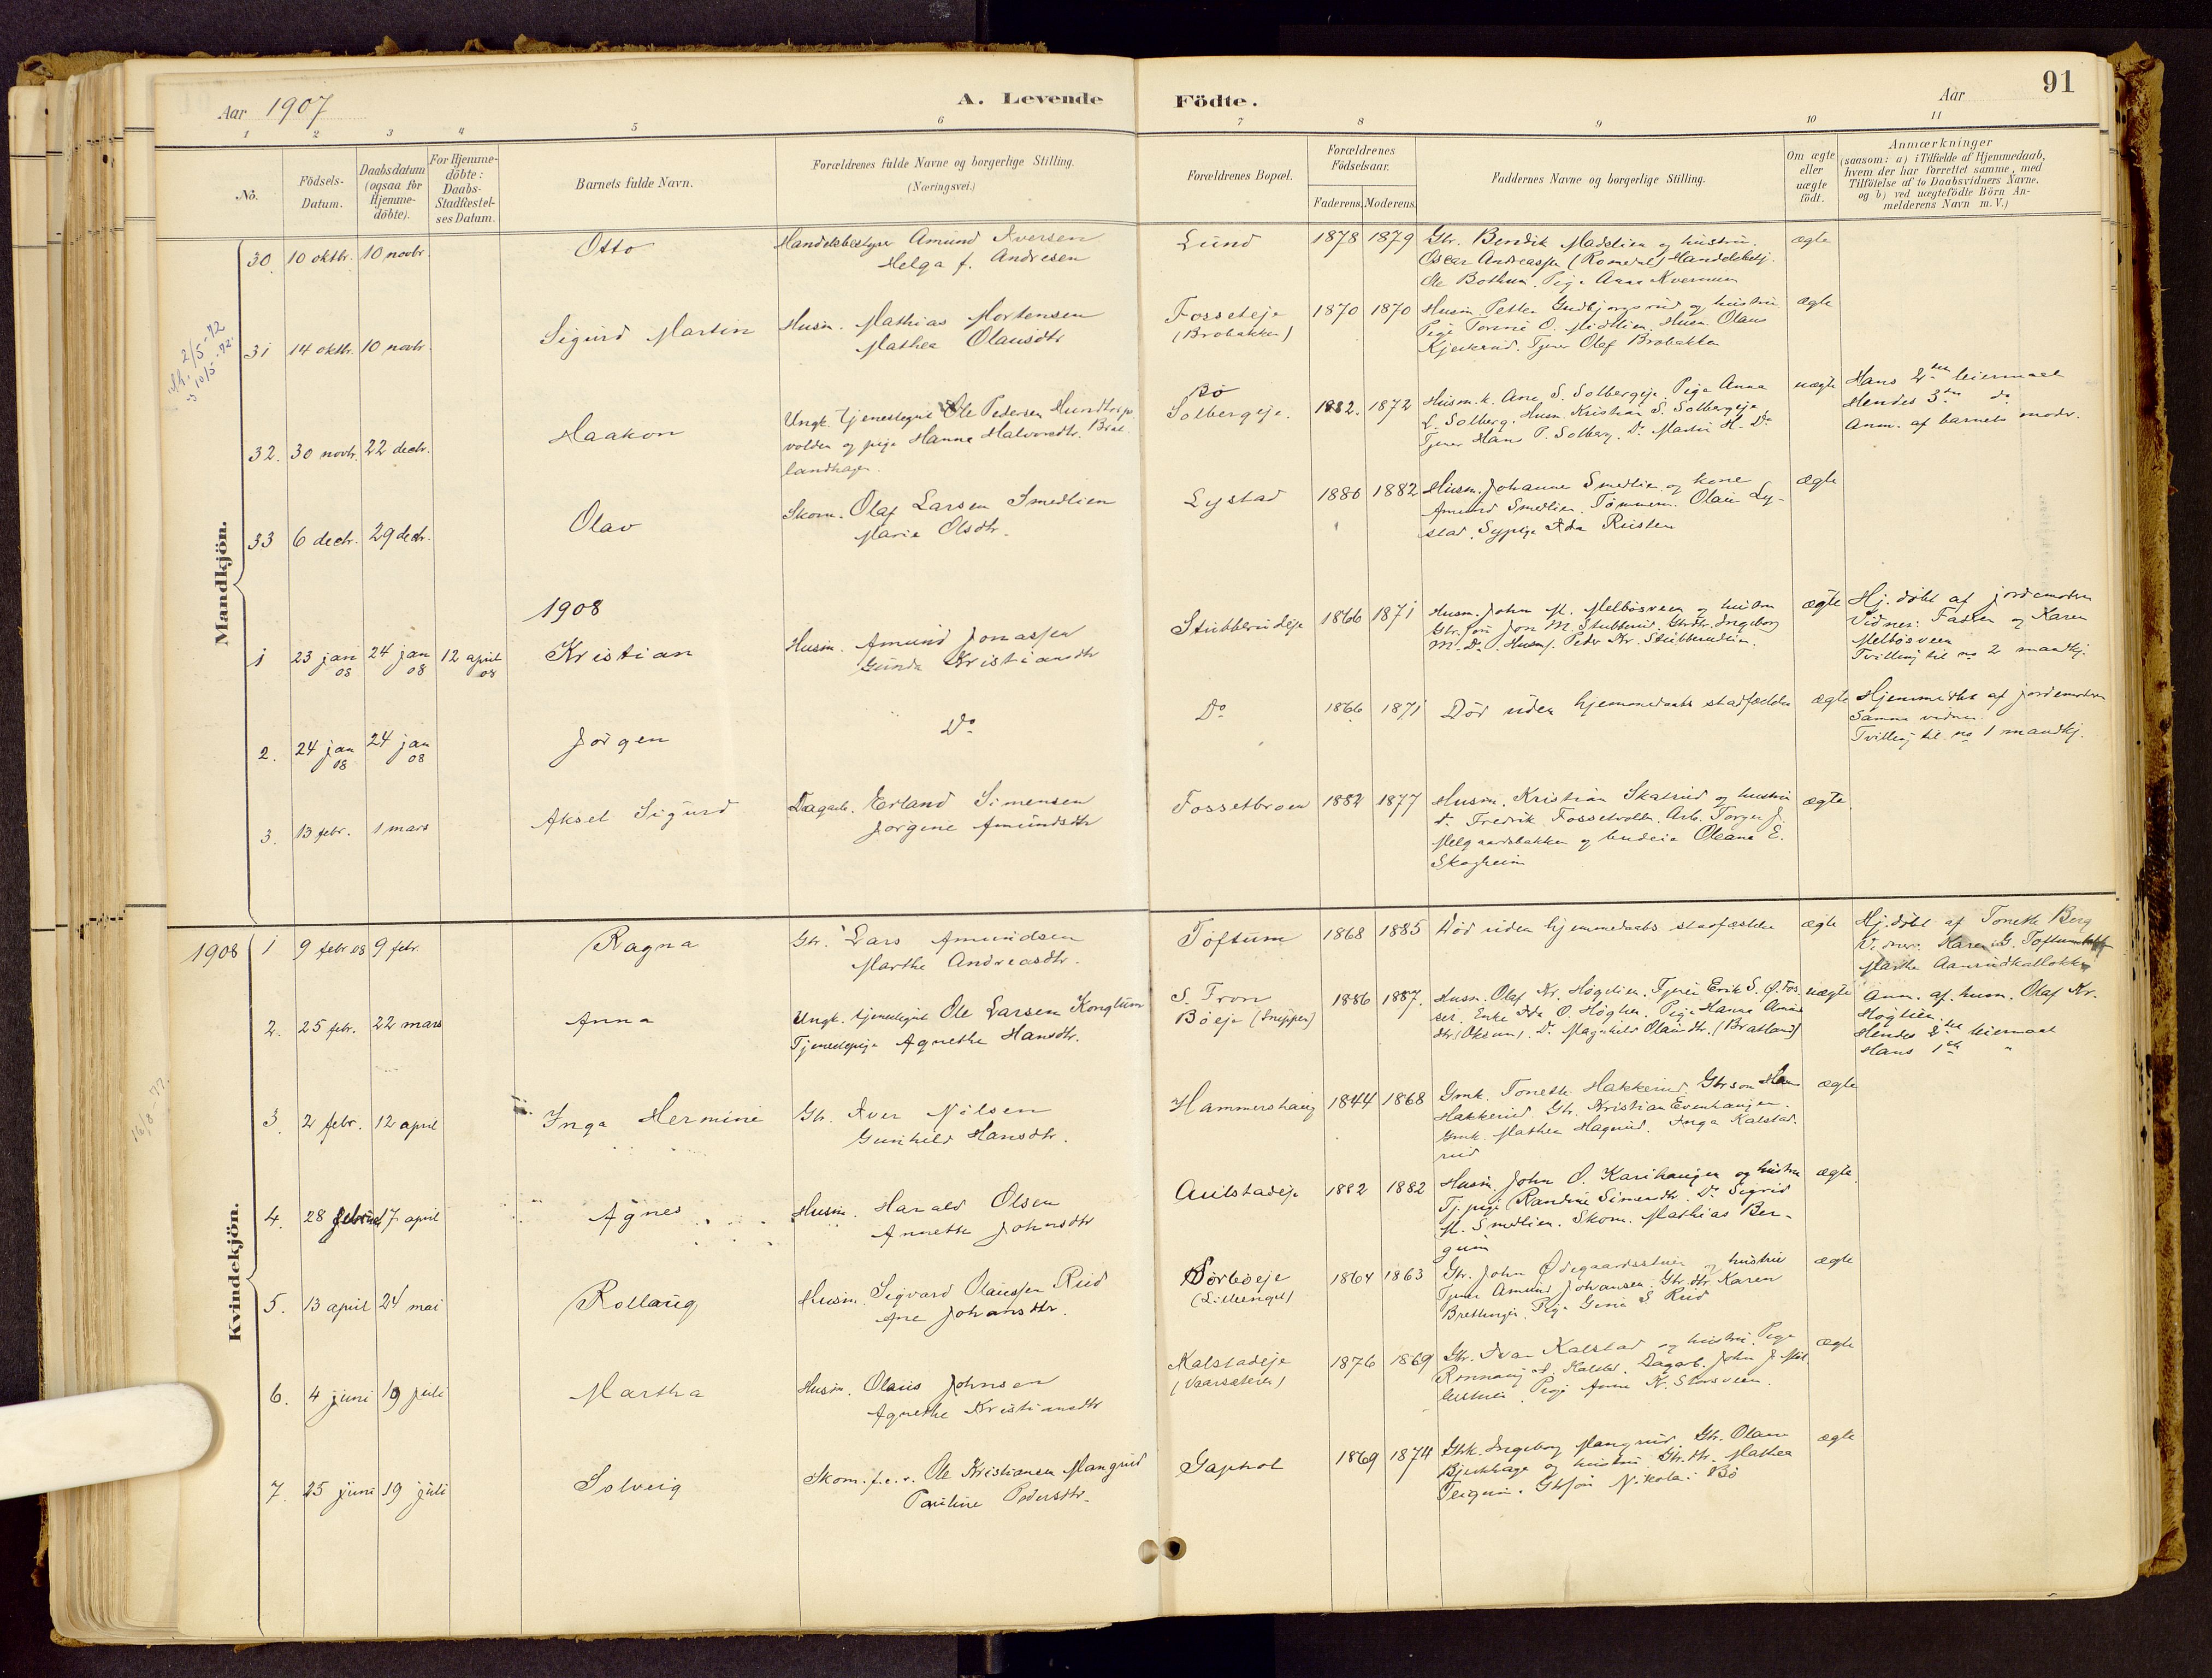 Aar 1907
A. Levende
Födte.
Aar
91
1 2 3 4 5 6 7 8 9 10 11
No.
Födsels-
Datum.
Daabsdatum
(ogsaa for
Hjemme-
döbte).
For Hjemme-
döbte:
Daabs-
Stadfæstel-
ses Datum.
Barnets fulde Navn.
Forældrenes fulde Navne og borgerlige Stilling.
(Næringsvei.)
Forældrenes Bopæl.
Forældrenes
Födselsaar.
Faderens. Moderens.
Faddernes Navne og borgerlige Stilling.
Om ægte
eller
uægte
födt.
Anmærkninger
(saasom: a) i Tilfælde af Hjemmedaab,
hvem der har forrettet samme, med
Tilföielse af to Daabsvidners Navne.
og b) ved uægtefödte Börn An-
melderens Navn m. V.)
Mandkjön.
30. 10 oktbr. 10 novbr.
Otto
Handelsbestyrer Amund Iversen
Helga f. Andresen
Lund
1878 1879
Gbr. Bendik Madslien og hustru.
Oscar Andreassen (Romedal) Handelsbetj.
Ole Bothun. Pige Anna Kvernum
ægte
2/5-72
10/5-72
31 14 oktbr. 10 novbr.
Sigurd Martin
Husm. Mathias Mortensen
Mathea Olausdtr
Fosseteje
(Brobakken)
1870 1870
Husm. Petter Gudbjorgsrud og hustru
Pige Torine O. Midtlien. Husm. Olaus
Kjerkerud. Tjener Olaf Brobakken
ægte
32. 30 novbr. 22 decbr.
Haakon
Ungk. tjenestegut Ole Pedersen Hundtorp
volden og pige Hanna Halvorsdtr. Brat
landhagen.
Bö
Solbergeje.
1882. 1872
Husm.k. Ane S. Solbergeje. Pige Anna
L. Solberg. Husm. Kristian S. Solbergeje.
Tjener Hans P. Solberg. Do Martin H. Do
uægte
Hans 2den leiermaal
Hendes 3die do
Anm. af barnets moder.
33 6 decbr. 29 decbr.
Olav
Skom. Olaf Larsen Smedlien
Marie Olsdtr.
Lystad
1886 1882
Husm. Johannes Smedlien og kone
Amund Smedlien. Tömmerm. Olaus Ly-
stad. Sypige Ida Reisten
ægte
1908
1 23 jan 08 24 jan 08 12 april 08
Kristian
Husm. Amund Jonassen
Gunda Kristiansdtr
Stubberudeje
1866 1871
Husm. John M. Melbösveen og hustru
Gbr. sön Jon M. Stubberud. Gbrdtr. Ingeborg
M. Do. Husm. Peder Kr. Stubberudlien.
ægte
Hj. döbt af jordemoderen
Vidner: Faderen og Karen
Melbösveen
Tvilling til no 2 mandkj.
2. 24 jan 08 24 jan 08
Jörgen
Do
Do
1866 1871
Död uden hjemmedaabs stadfæstelse
ægte
Hjemmedöbt af jordemoderen
Samme vidner.
Tvilling til no 1 mandkj.
3. 13 febr. 1 mars
Aksel Sigurd
Dagarb. Erland Simensen
Jörgine Amundsdtr
Fossetbroen
1882 1877
Husm. Kristian Skatrud og hustru
Fredrik Fossetvolden. Arb. Torger J.
Melgaardsbakken og budeia Oleana E.
Skogheim
ægte
Kvindekjön.
1908 1 9 febr 08 9 febr.
Ragna
Gbr. Lars Amundsen
Marthe Andreasdtr.
Toftum
1868 1885
Död uden hjemmedaabs stadfæstelse
ægte
Hj. döbt af Tonette Berg
Vidner. Karen G. Toftum
Marthe Aanrudkalløkken
2. 25 febr. 22 mars
Anna
Ungk. tjenestegut Ole Larsen Konglum
Tjenestepige Agnethe Hansdtr.
S. Fron
Böeje (Sneppen)
1886 1887.
Husm. Olaf Kr. Höglien. Tjener Erik S. Ö. Fos-
set. Enke Ida O. Höglien. Pige Hanna Amunds
dtr (Oksum). Do Magnhild Olausdtr. (Bratland)
uægte
Anm. af husm. Olaf Kr.
Höglien.
Hendes 2det leiermaal
Hans 1ste "
16/8-77.
3. 2 febr. 12 april
Inga Hermine
Gbr. Iver Nilsen
Gunhild Hansdtr.
Hammershaug
1844 1868
Gmk. Tonette Hakkerud. Gbrsön
Hakkerud. Gbr. Kristian Evenhaugen.
Gmk. Mathea Hagerud. Inga Kalstad-
rud
ægte
4. 28 februar 17 april
Agnes
Husm. Harald Olsen
Annette Johnsdtr
Aulstadeje
1882 1882
Husm. John O. Karihaugen og hustru
Tj. pige Randine Simensdtr. Do Sigrid
M. Smedlien. Skom. Mathias Ber-
gum
ægte.
5. 13 april 24 mai
Rollaug
Husm. Sigvard Olaussen Rud
Ane Johansdtr.
Sörböeje
(Lilleenget)
1864 1863
Gbr. John Ödegaardsstuen og hustru
Tjener Amund Johansen. Gbr.dtr. Karen
Brettingen. Pige Gina S. Rud
ægte
6. 4 juni 19 juli
Martha
Husm. Olaus Johnsen
Agnethe Kristiansdtr
Kalstadeje
(Vaarsæteren)
1876 1869
Gbr. Ivar Kalstad og hustru. Pige
Rönnaug Kalstad. Dagarb. John J.
Pige Anne K. Storsveen.
ægte
7. 25 juni 19 juli
Solveig
Skom. f.e.r. Ole Kristiansen Mangrud
Pauline Pedersdtr.
Gaphol
1869 1874
Gbk. Ingeborg Mangrud. Gbr. Olaus
Bjerkhage og hustru. Gbr.dtr. Mathea
Teigum. Gbrsön Nikolai Bö
ægte